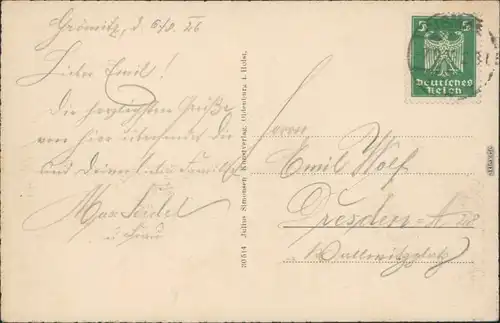 Grömitz, d. 6/8. 26
Lieber Emil!
Die herzlichsten Grüße
von hier übersendet dir
und Deiner lieben Familie
Max Seidel
u. Frau
30514 Julius Simonsen Kunstverlag, Oldenburg i. Holst.
5 5
Deutsches
Reich
Herrn
Emil Wolf
Dresden-A. 28
Wallwitzplatz